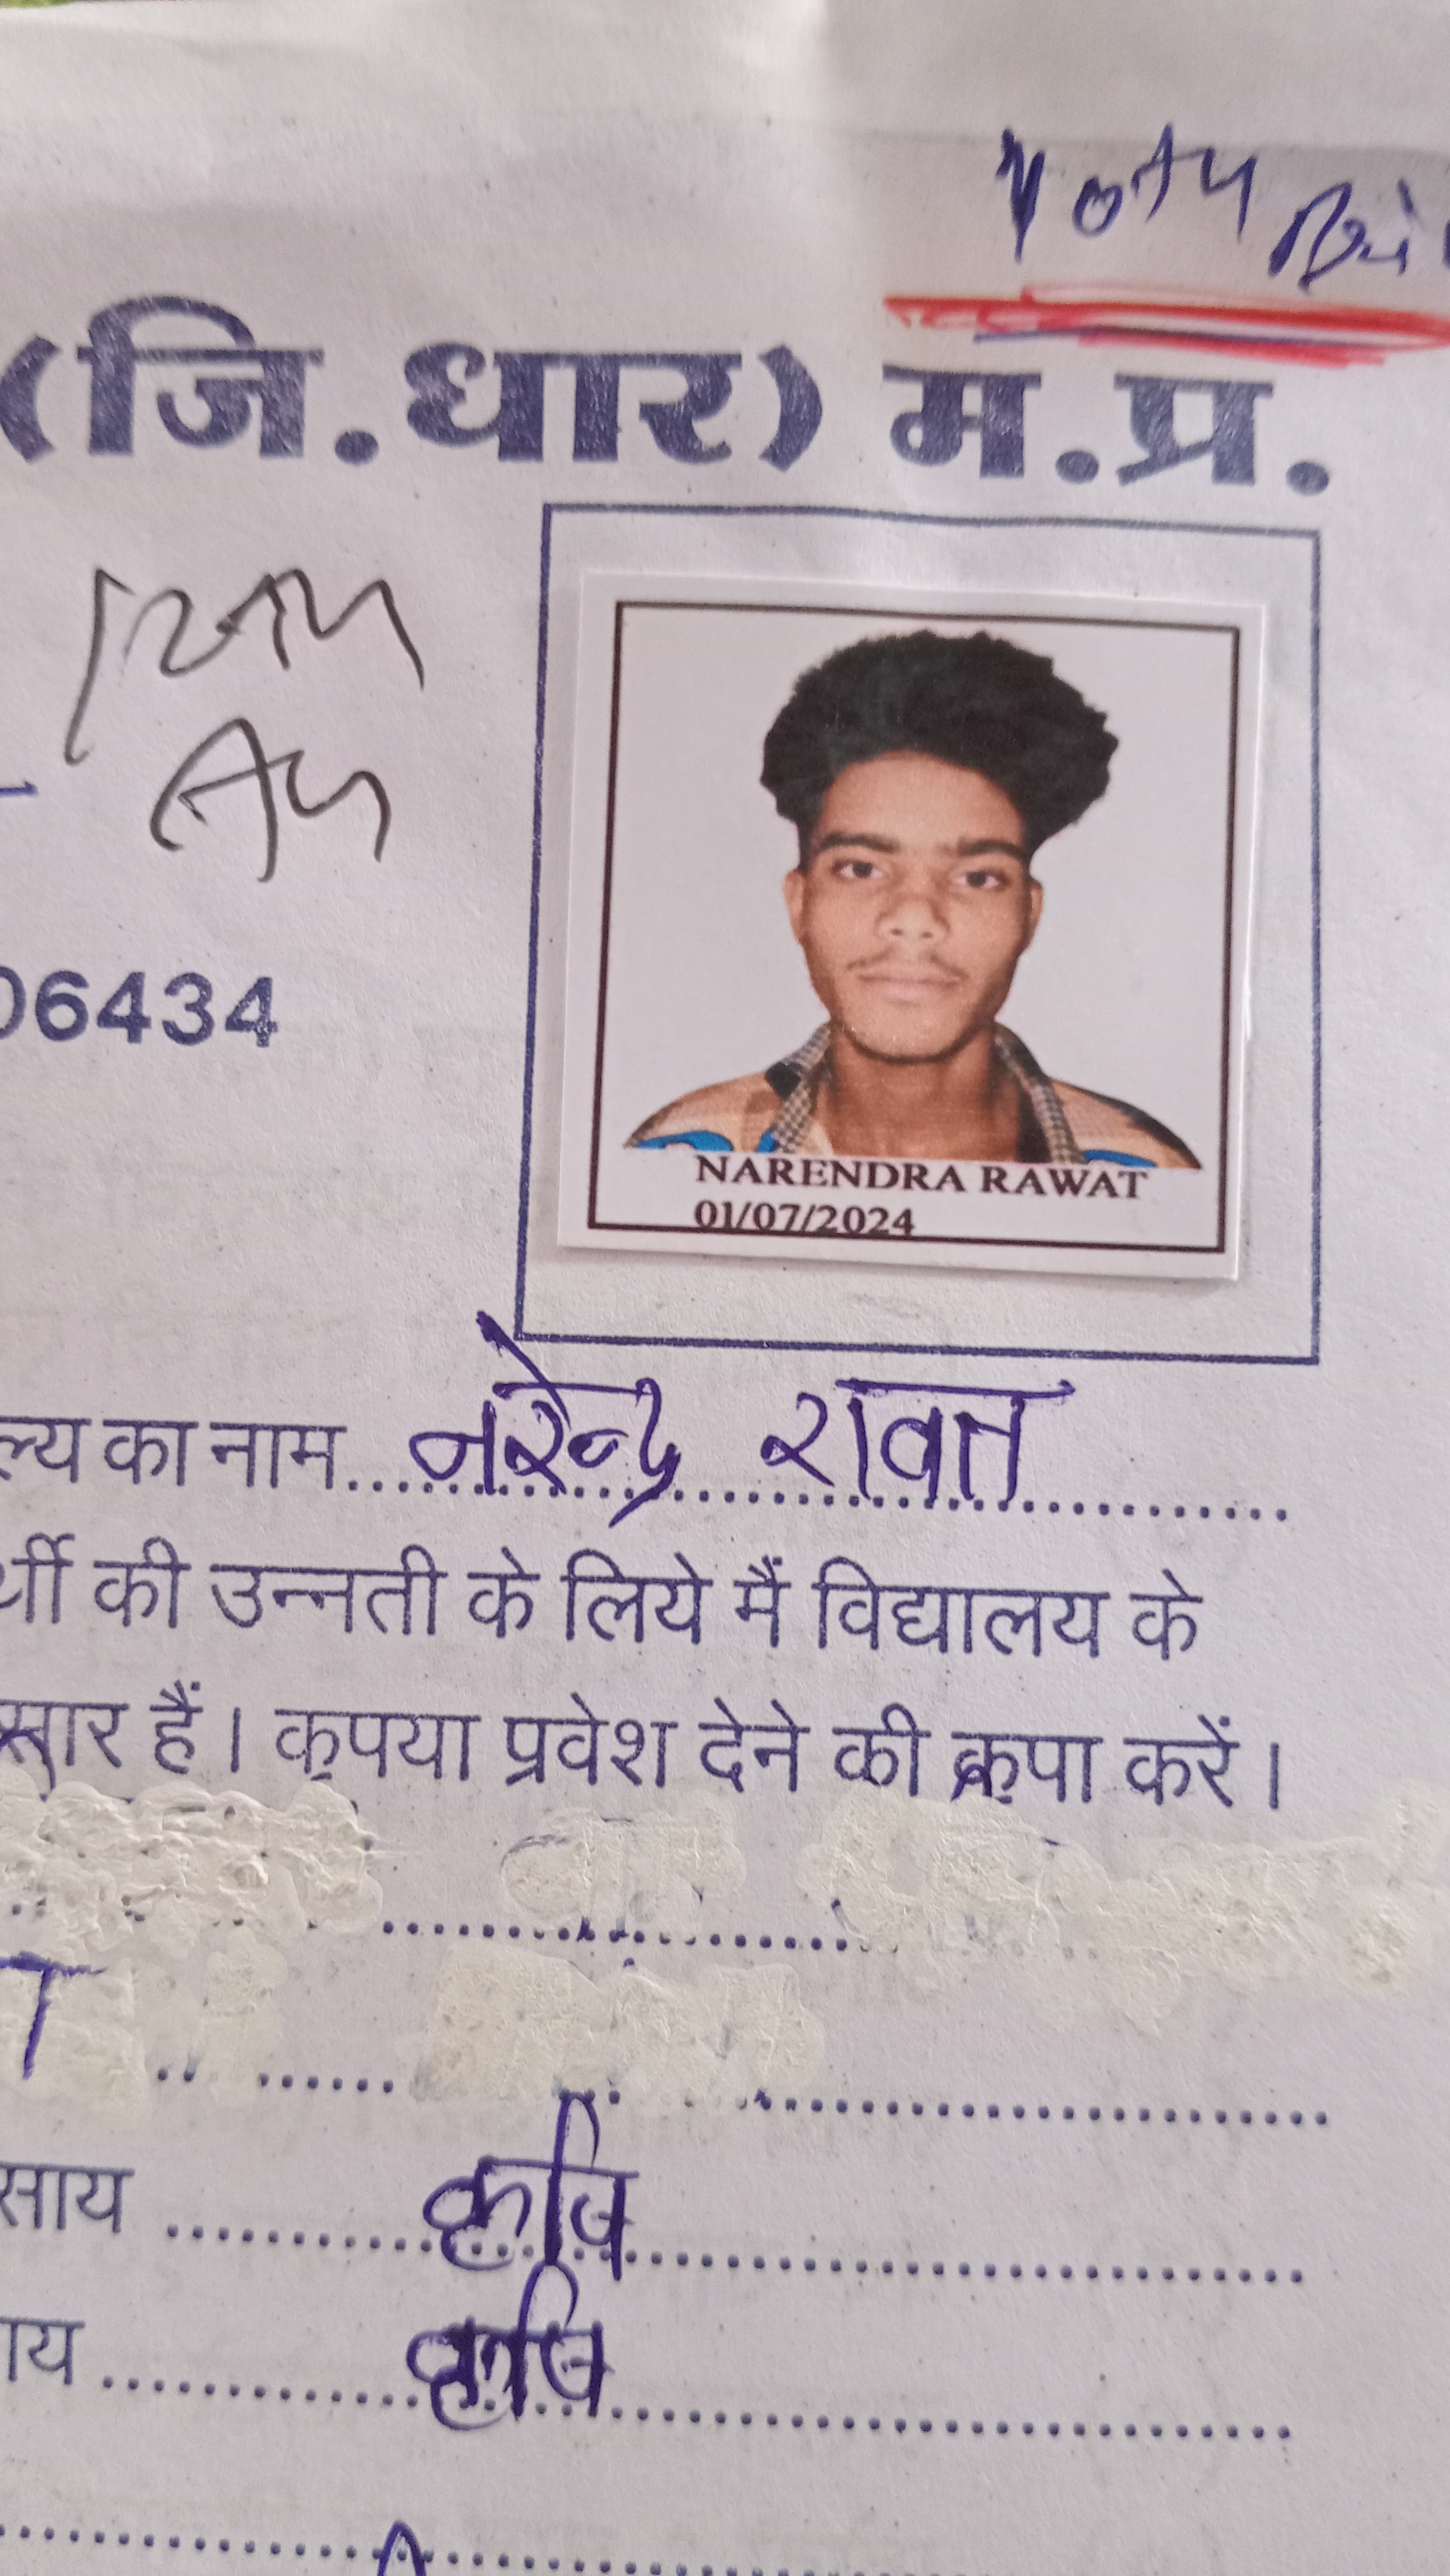 (जि.धार) म.प्र.
06434
NARENDRA RAWAT
01/07/2024
ल्य का नाम नरेन्द्र रावत
र्थी की उन्नती के लिये मैं विद्यालय के
सार हैं। कृपया प्रवेश देने की कृपा करें।
साय कृषि
ाय कृषि